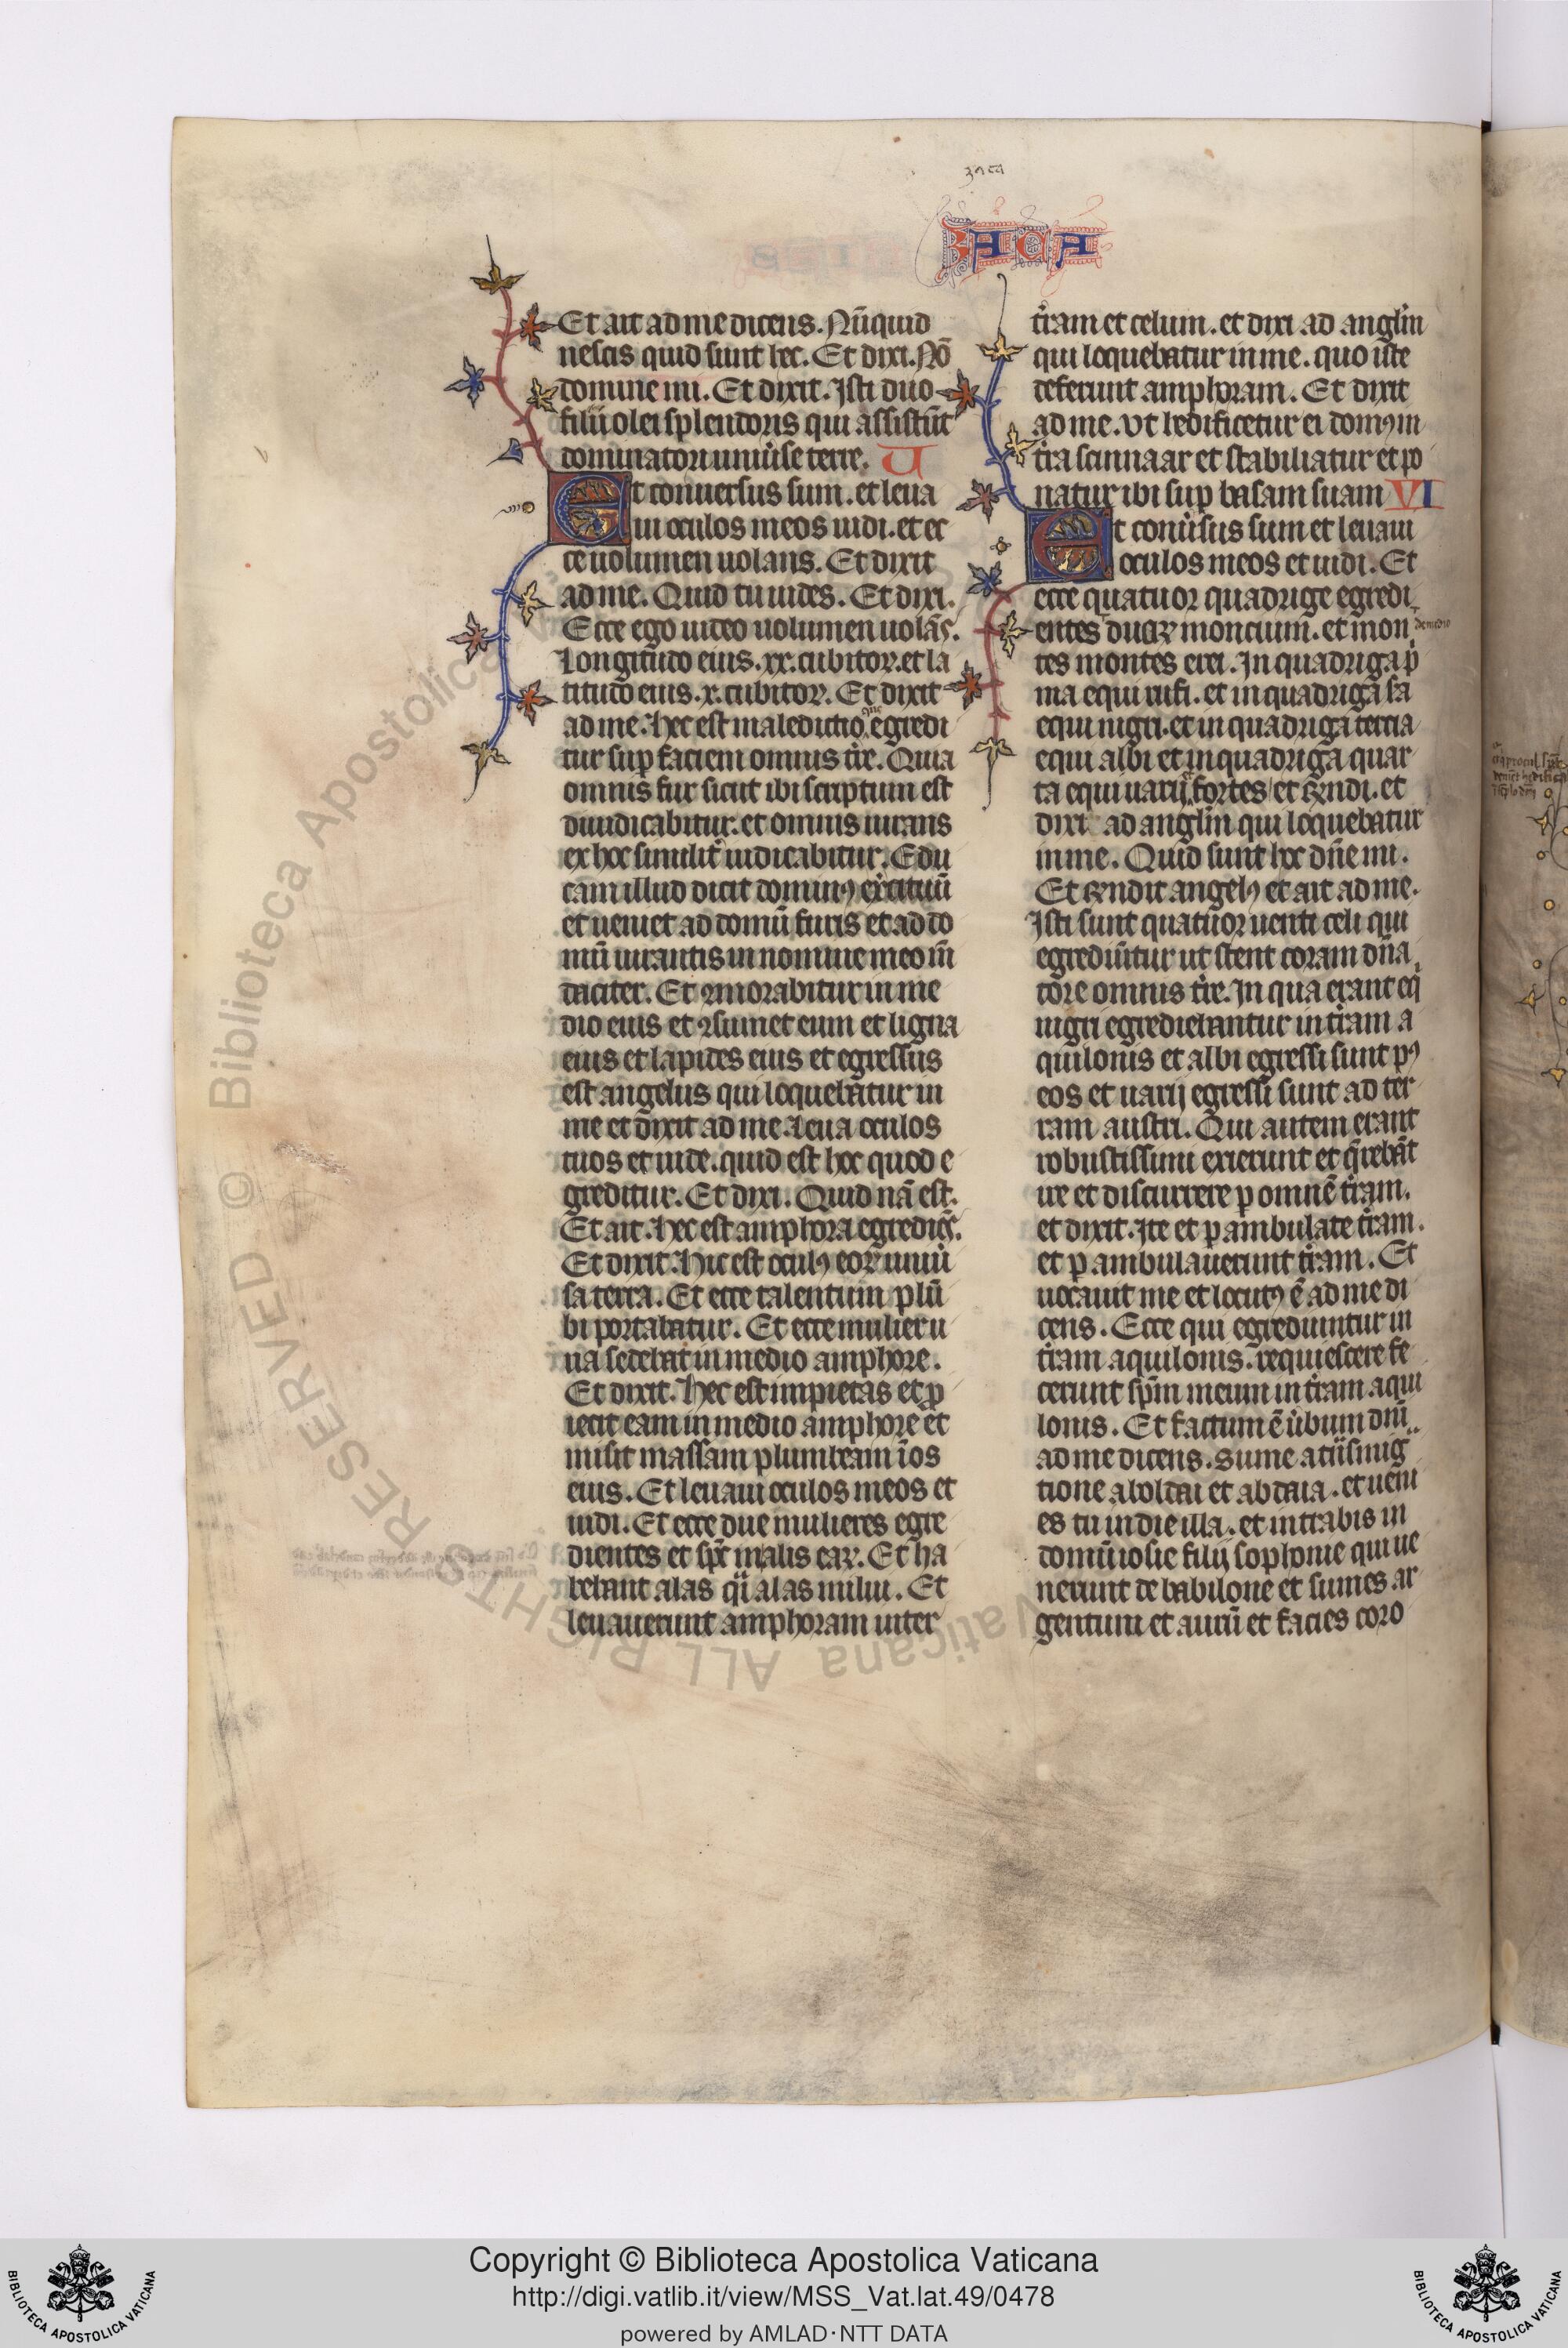 zaca
ZACA
Et ait ad me dicens. Nūquid
nescis quid sunt hec. Et dixi. Nō
domine mi. Et dixit. Isti duo
filii olei splendoris qui assistūt
dominatori uniůse terre. V
Et conuersus sum. et leua
ui oculos meos uidi. et ec
ce uolumen uolans. Et dixit
ad me. Quid tu uides. Et dixi.
Ecce ego uideo uolumen uolās.
Longitudo eius .xx. cubitoꝝ. et la
titudo eius .x. cubitoꝝ. Et dixit
ad me. Hec est maledictio que egredi
tur suꝑ faciem omnis tr̄e. Quia
omnis fur sicut ibi scriptum est
diiudicabitur. et omnis iurans
ex hoc similit̉ iudicabitur. Edu
cam illud dicit dominꝰ exercituū
et ueniet ad domū furis et ad do
mū iurantis in nomine meo m̄
daciter. Et ꝯmorabitur in me
dio eius et ꝯsumet eum et ligna
eius et lapides eius et egressus
est angelus qui loquebatur in
me et dixit ad me. Leua oculos
tuos et uide. quid est hoc quod e
greditur. Et dixi. Quid nā est.
Et ait. Hec est amphora egrediēs.
Et dixit. Hic est oculꝰ eoꝝ in uniů
sa terra. Et ecce talentum plū
bi portabatur. Et ecce mulier u
na sedebat in medio amphore.
Et dixit. Hec est impietas et ꝓ
iecit eam in medio amphore et
misit massam plumbeam ī os
eius. Et leuaui oculos meos et
uidi. Et ecce due mulieres egre
dientes et sp̄c in alis eaꝝ. Et ha
bebant alas q̈i alas milui. Et
leuauerunt amphoram inter
tr̄am et celum. et dixi ad anglm̄
qui loquebatur in me. quo iste
deferunt amphoram. Et dixit
ad me. Vt hedificetur ei domꝰ in
tr̄a sennaar et stabiliatur et po
natur ibi suꝑ basam suam VI
Et conůsus sum et leuaui
oculos meos et uidi. Et
ecce quatuor quadrige egredi
entes de medio duaꝝ montium. et mon
tes montes erei. In quadriga p̄
ma equi rufi. et in quadriga sā
equi nigri. et in quadriga tercia
equi albi et in quadriga quar
ta equi uarij et fortes et ꝶndi. et
dixi ad anglm̄ qui loquebatur
in me. Quid sunt hec dn̄e mi.
Et ꝶndit angelꝰ et ait ad me.
Isti sunt quatuor uenti celi qui
egrediūtur ut stent coram dn̄a
tore omnis tr̄e. In qua erant eq̇
nigri egrediebantur in tr̄am a
quilonis et albi egressi sunt pꝰ
eos et uarij egressi sunt ad ter
ram austri. Qui autem erant
robustissimi exierunt et q̄rebāt
ire et discurrere ꝑ omnē tr̄am.
et dixit. Ite et ꝑambulate tr̄am.
et ꝑambulauerunt tr̄am. Et
uocauit me et locutꝰ ē ad me di
cens. Ecce qui egrediuntur in
tr̄am aquilonis. requiescere fe
cerunt sp̄m meum in tr̄am aqui
lonis. Et factum ē ůbum dn̄i
ad me dicens. Sume a tn̄smig̈
tione ab oldai et ab daia. et ueni
es tu in die illa. et intrabis in
domū iosie filij sophonie qui ue
nerunt de babilone et sumes ar
gentum et aurū et facies coro
© Biblioteca Apostolica Vaticana ALL RIGHTS RESERVED
Copyright © Biblioteca Apostolica Vaticana
http://digi.vatlib.it/view/MSS_Vat.lat.49/0478
powered by AMLAD·NTT DATA
BIBLIOTECA APOSTOLICA VATICANA
BIBLIOTECA APOSTOLICA VATICANA